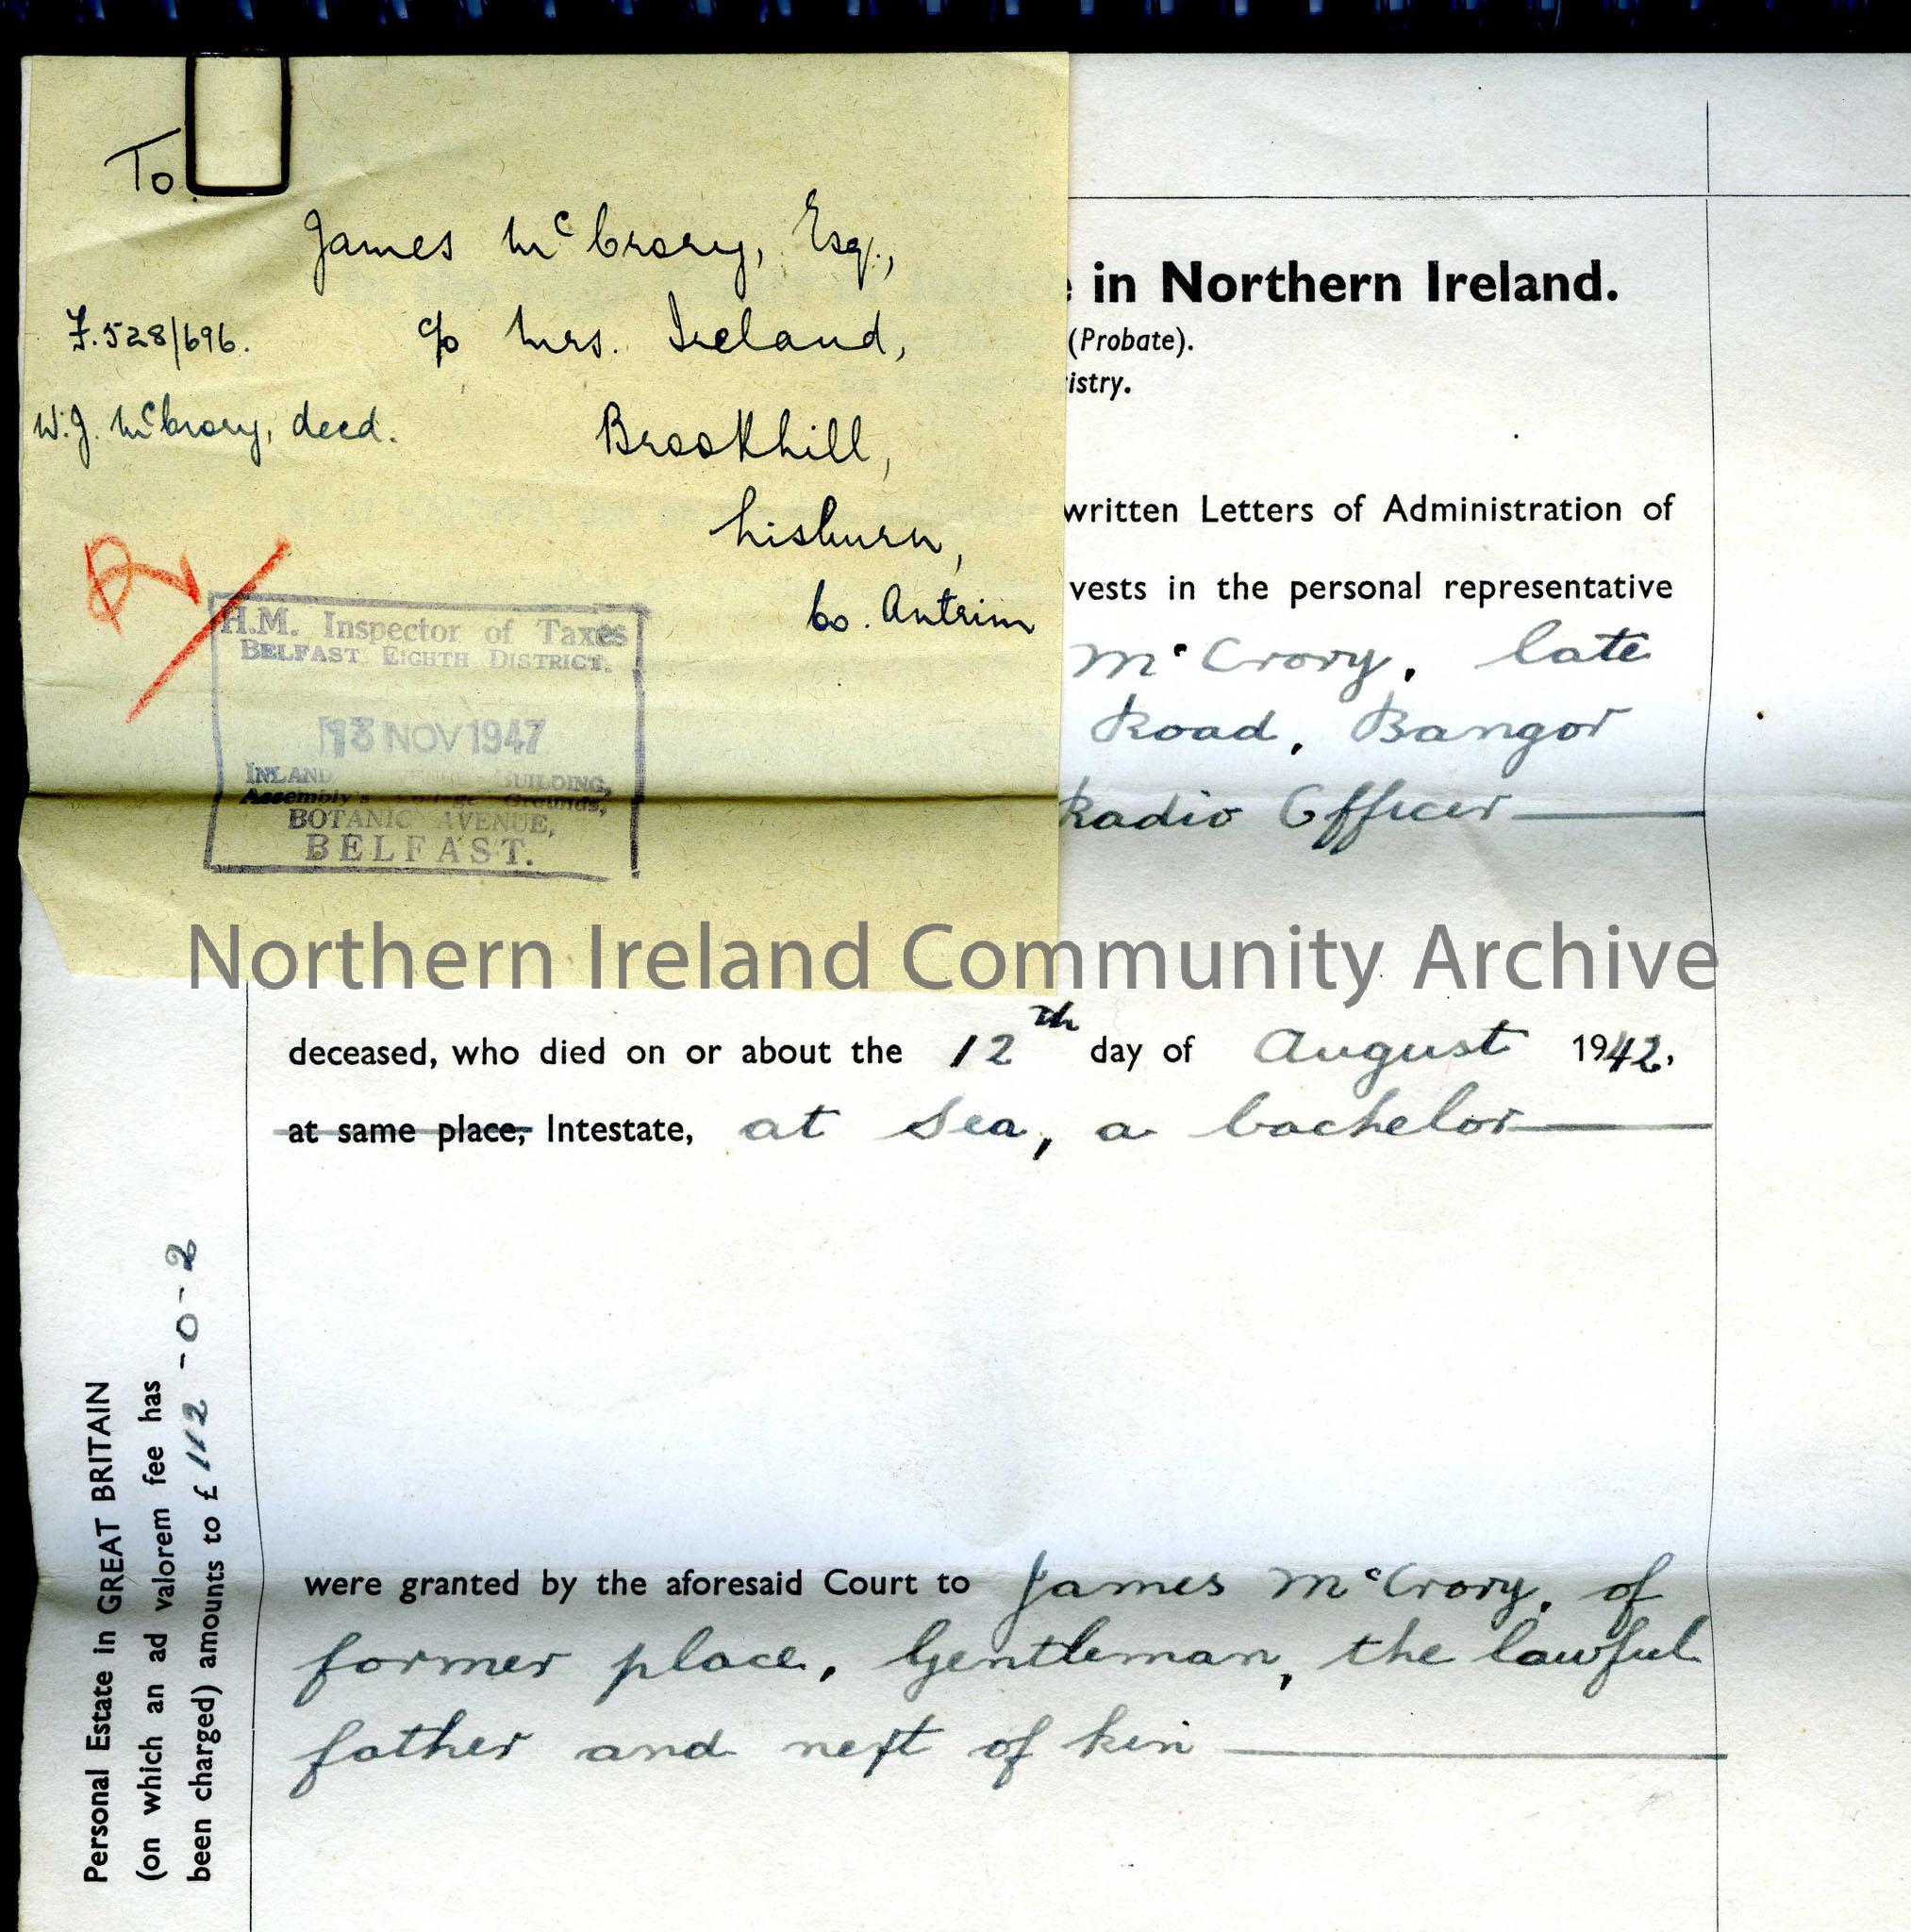 To
James McCrory, Esq.,
F.528/696.
c/o Mrs. Ireland,
W.J. McCrory, decd.
Brookhill,
Lisburn,
Co. Antrim
H.M. Inspector of Taxes
BELFAST EIGHTH DISTRICT.
13 NOV 1947
INLAND BUILDING,
Assembly's College Grounds,
BOTANIC AVENUE,
BELFAST.
in Northern Ireland.
(Probate).
istry.
written Letters of Administration of
vests in the personal representative
McCrory, late
Road, Bangor
Radio Officer
Northern Ireland Community Archive
deceased, who died on or about the 12th day of August 1942,
at same place, Intestate, at sea, a bachelor
were granted by the aforesaid Court to James McCrory, of
former place, Gentleman, the lawful
father and next of kin
Personal Estate in GREAT BRITAIN
(on which an ad valorem fee has
been charged) amounts to £ 112 - 0 - 2